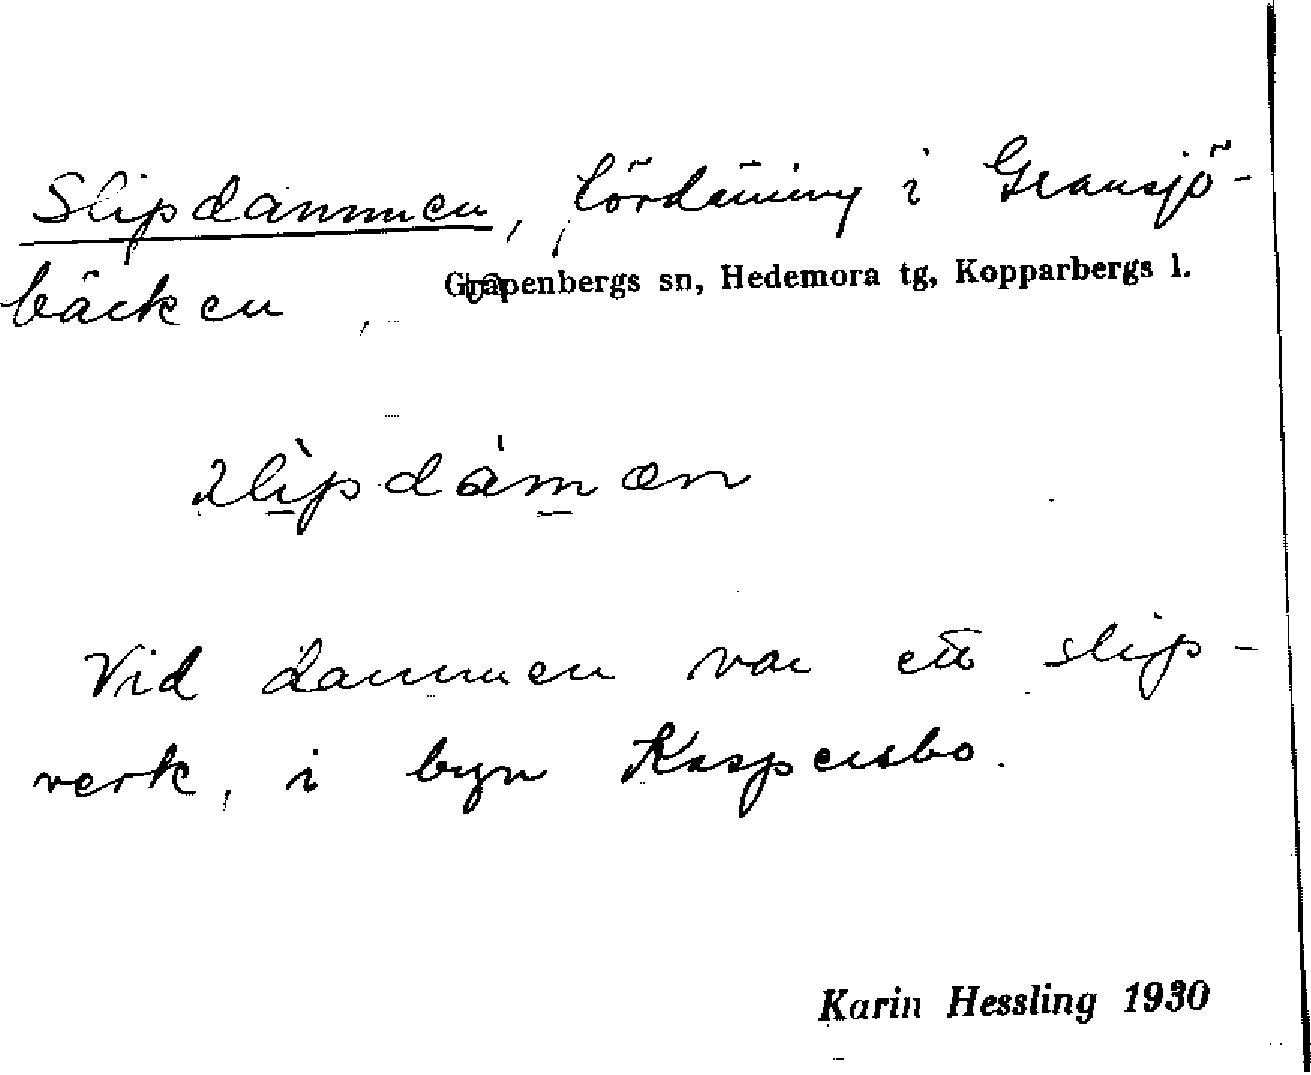 Slipdammen, fördäming i Gransjö-
bäcken, Garpenbergs sn, Hedemora tg, Kopparbergs l.
slìpdámən
Vid dammen var ett slip-
verk, i byn Kaspersbo.
Karin Hessling 1930